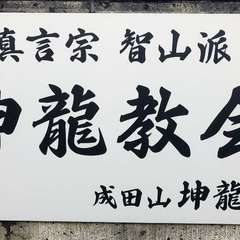 真言宗 智山派
坤龍教会
成田山 坤龍